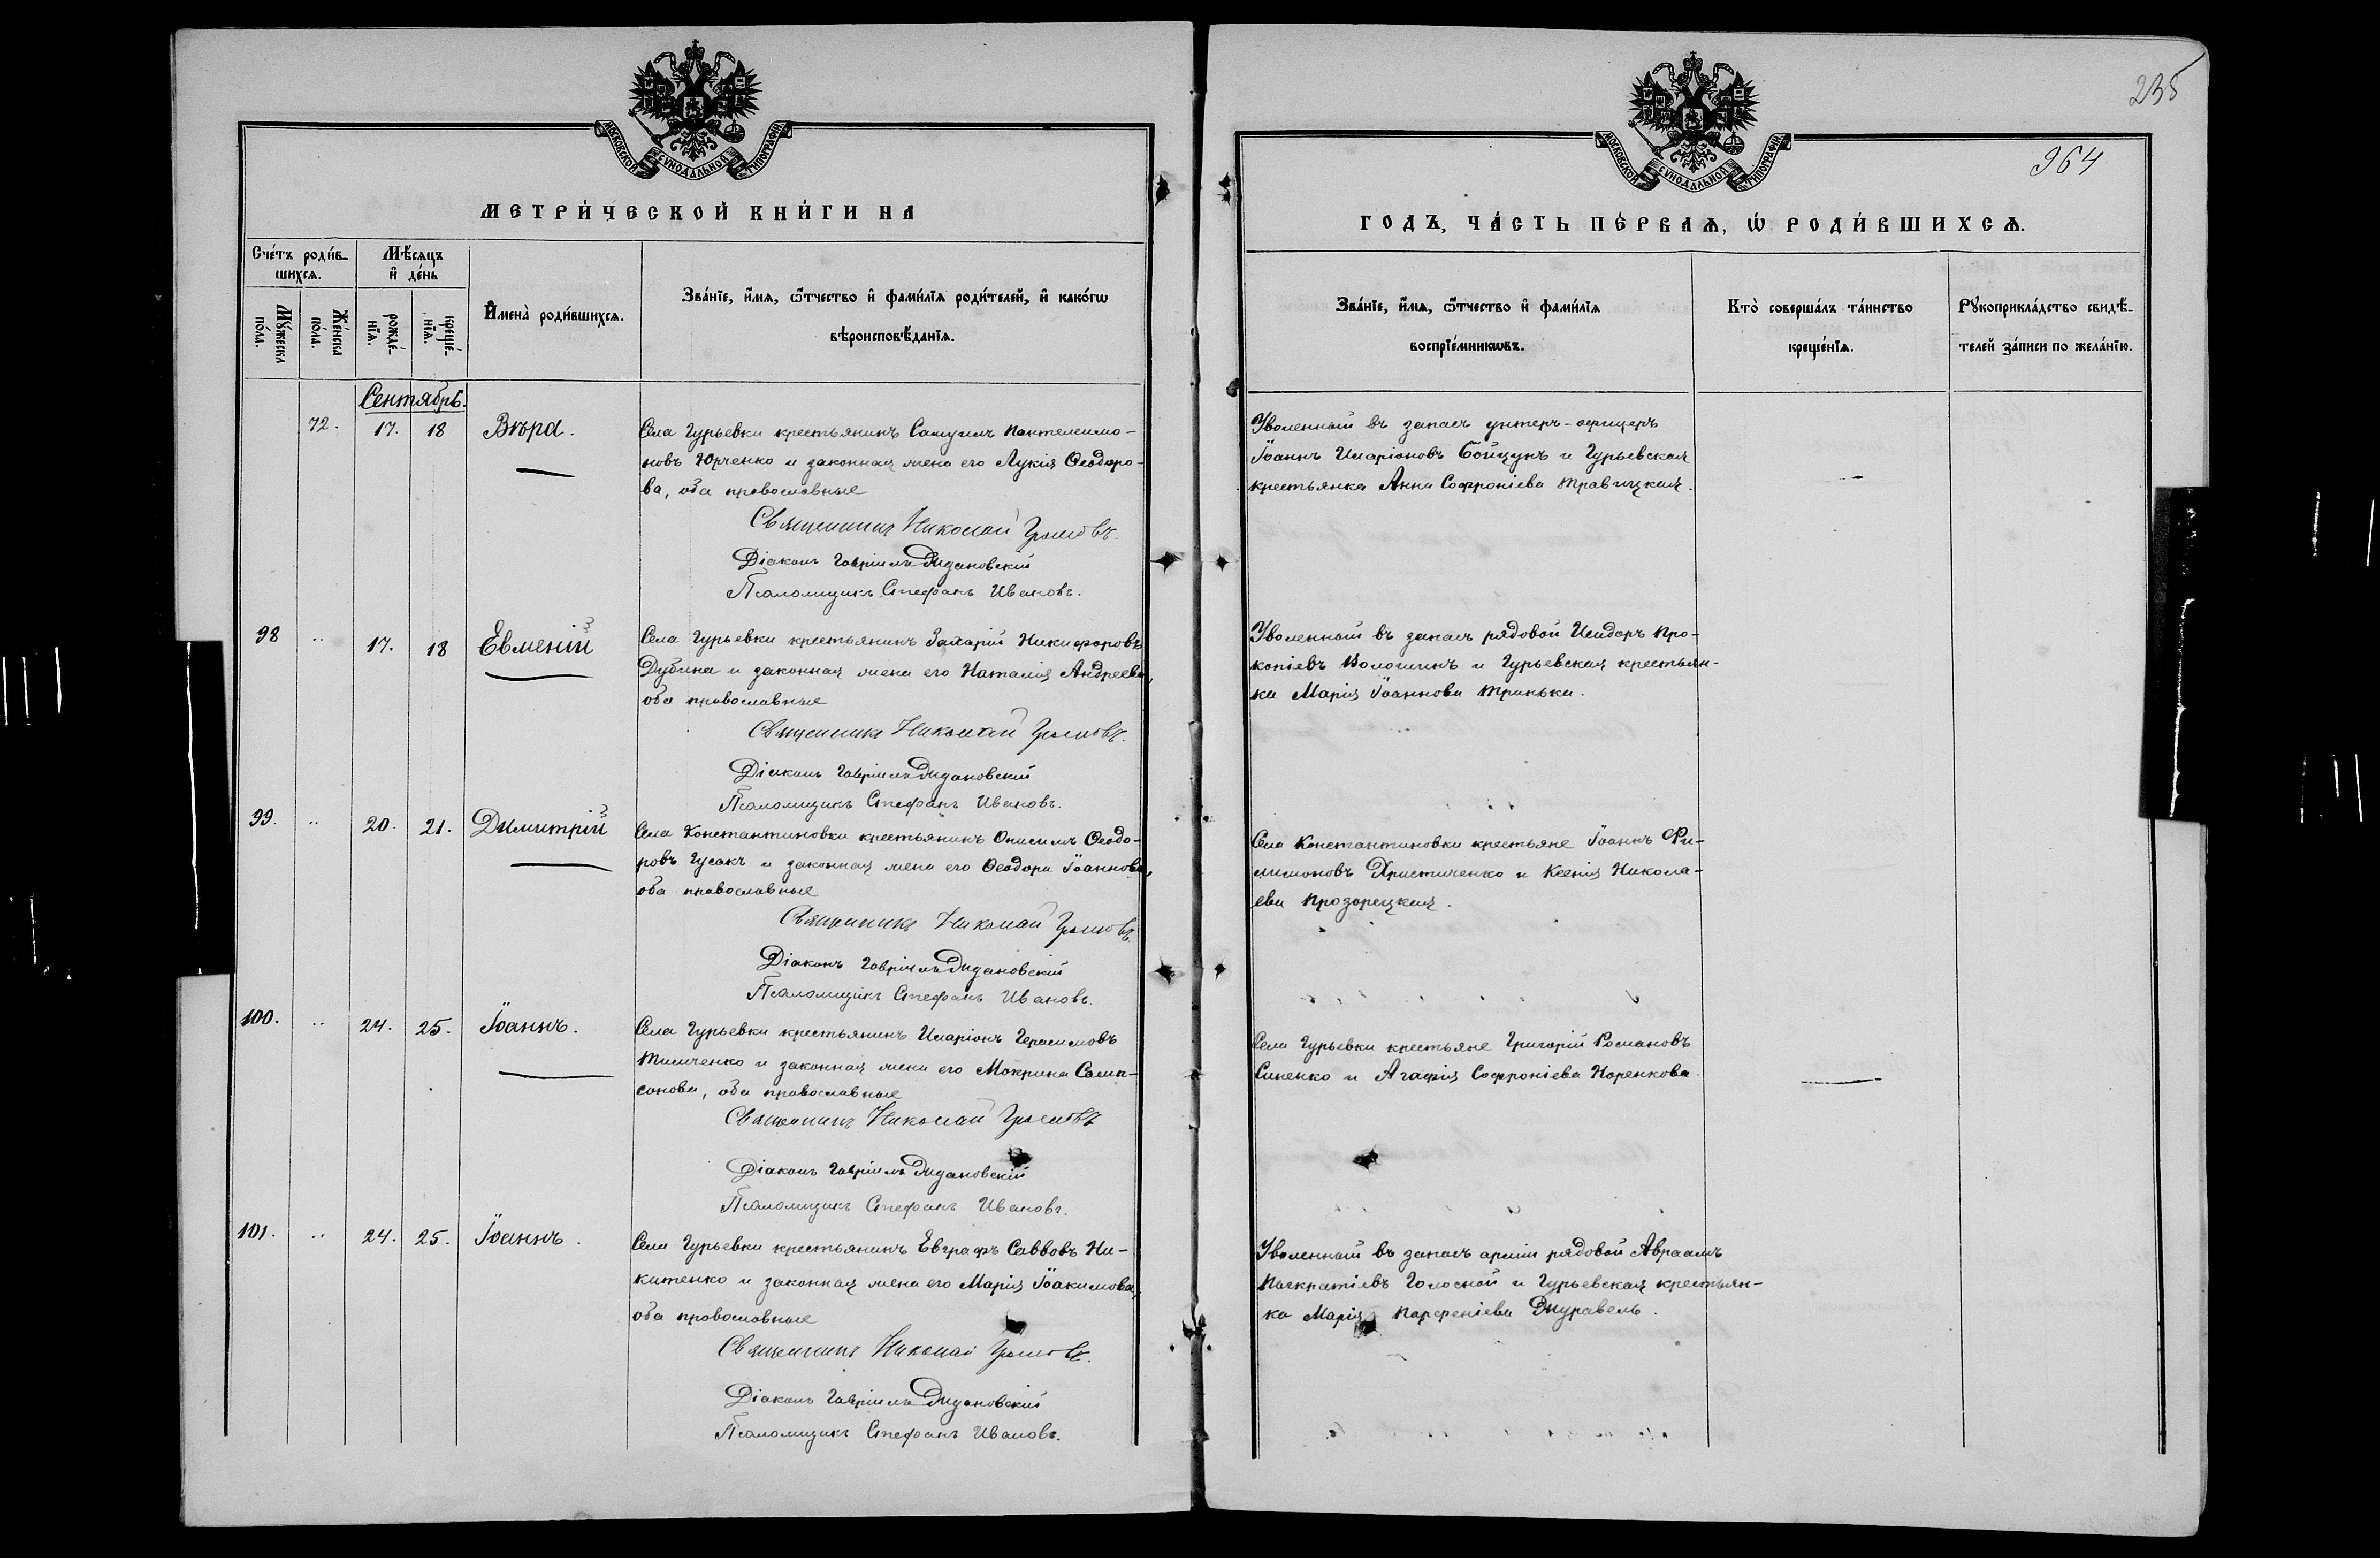 МОСКОВСКОЙ СѴНОДАЛЬНОЙ ТИПОГРАФІИ
МЕТРИ́ЧЕСКОЙ КНИ́ГИ НА
Сче́тъ роди́в-
шихсѧ.
Мѣ́сѧцъ
и҆ де́нь
Мꙋ́жеска
по́ла.
Же́нска
по́ла.
рожде́-
нїѧ.
креще́-
нїѧ.
И҆мена̀ роди́вшихсѧ.
Зва́нїе, и҆́мѧ, ѻ҆́тчество и҆ фами́лїѧ роди́телей, и҆ како́гѡ
вѣроисповѣ́данїѧ.
Сентябрь.
72. 17. 18 Вѣра.
Села Гурьевки крестьянинъ Самуилъ Пантелеимо-
новъ Юрченко и законная жена его Лукія Ѳеодоро-
ва, оба православные
Священникъ Николай Громовъ.
Діаконъ Гавріилъ Дидановскій
Псаломщикъ Стефанъ Ивановъ.
98 .. 17. 18 Евменій
Села Гурьевки крестьянинъ Захарій Никифоровъ
Дубина и законная жена его Наталія Андреева,
оба православные
Священникъ Николай Громовъ.
Діаконъ Гавріилъ Дидановскій
Псаломщикъ Стефанъ Ивановъ.
99. .. 20. 21. Димитрій
Села Константиновки крестьянинъ Онисимъ Ѳеодо-
ровъ Гусакъ и законная жена его Ѳеодора Іоаннова,
оба православные
Священникъ Николай Громовъ.
Діаконъ Гавріилъ Дидановскій
Псаломщикъ Стефанъ Ивановъ.
100. .. 24. 25. Іоаннъ.
Села Гурьевки крестьянинъ Иларіонъ Герасимовъ
Тимченко и законная жена его Мокрина Самп-
сонова, оба православные
Священникъ Николай Громовъ
Діаконъ Гавріилъ Дидановскій
Псаломщикъ Стефанъ Ивановъ.
101. .. 24. 25. Іоаннъ.
Села Гурьевки крестьянинъ Евграфъ Саввовъ Ни-
китенко и законная жена его Марія Іоакимова,
оба православные
Священникъ Николай Громовъ.
Діаконъ Гавріилъ Дидановскій
Псаломщикъ Стефанъ Ивановъ.
235
МОСКОВСКОЙ СѴНОДАЛЬНОЙ ТИПОГРАФІИ
964
ГОДЪ, ЧА́СТЬ ПЕ́РВАѦ, Ѡ҆ РОДИ́ВШИХСѦ.
Зва́нїе, и҆́мѧ, ѻ҆́тчество и҆ фами́лїѧ
воспрїе́мникѡвъ.
Кто̀ соверша́лъ та́инство
креще́нїѧ.
Рꙋкоприкла́дство свидѣ́-
телей за́писи по жела́нїю.
Уволенный въ запасъ унтеръ-офицеръ
Іоаннъ Иларіоновъ Бойцунъ и Гурьевская
крестьянка Анна Софроніева Травицкая.
Уволенный въ запасъ рядовой Исидоръ Про-
копіевъ Волошинъ и Гурьевская крестьян-
ка Марія Іоаннова Тринька.
Села Константиновки крестьяне Іоаннъ Фи-
лимоновъ Христиченко и Ксенія Никола-
ева Прозорецкая.
Села Гурьевки крестьяне Григорій Романовъ
Синенко и Агафія Софроніева Норенкова
Уволенный въ запасъ арміи рядовой Авраамъ
Панкратіевъ Голосной и Гурьевская крестьян-
ка Марія Парфеніева Журавель.